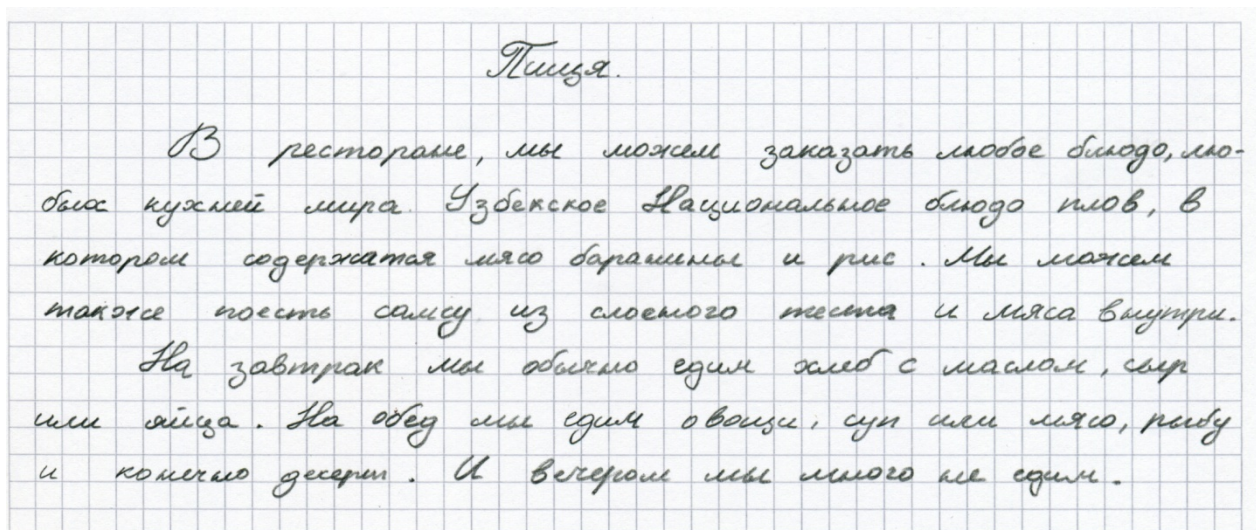 Пища.
В ресторане, мы можем заказать любое блюдо, лю-
бых кухней мира. Узбекское Национальное блюдо плов, в
котором содержатся мясо баранины и рис. Мы можем
также поесть самсу из слоеного теста и мяса внутри.
На завтрак мы обычно едим хлеб с маслом, сыр
или яйца. На обед мы едим овощи, суп или мясо, рыбу
и конечно десерт. И вечером мы много не едим.